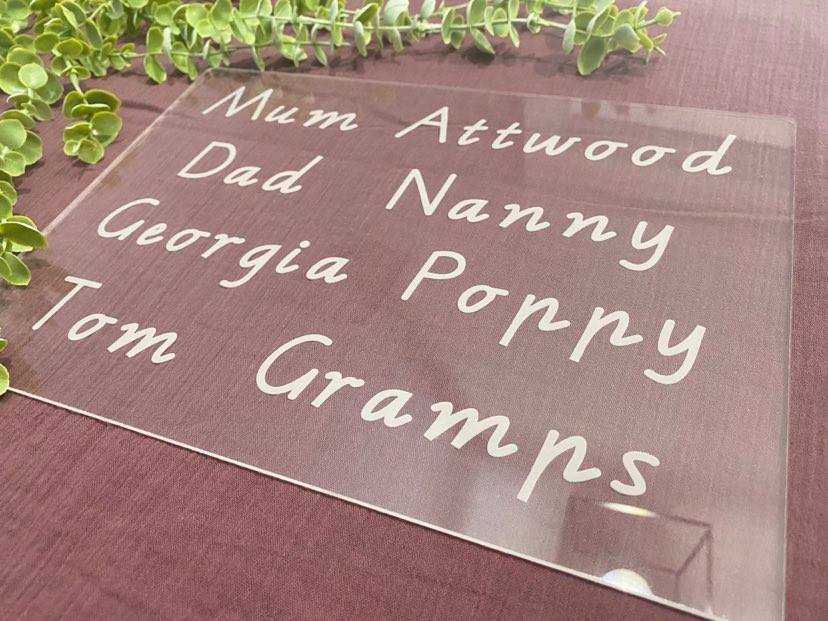 Mum Attwood
Dad Nanny
Georgia Poppy
Tom Gramps